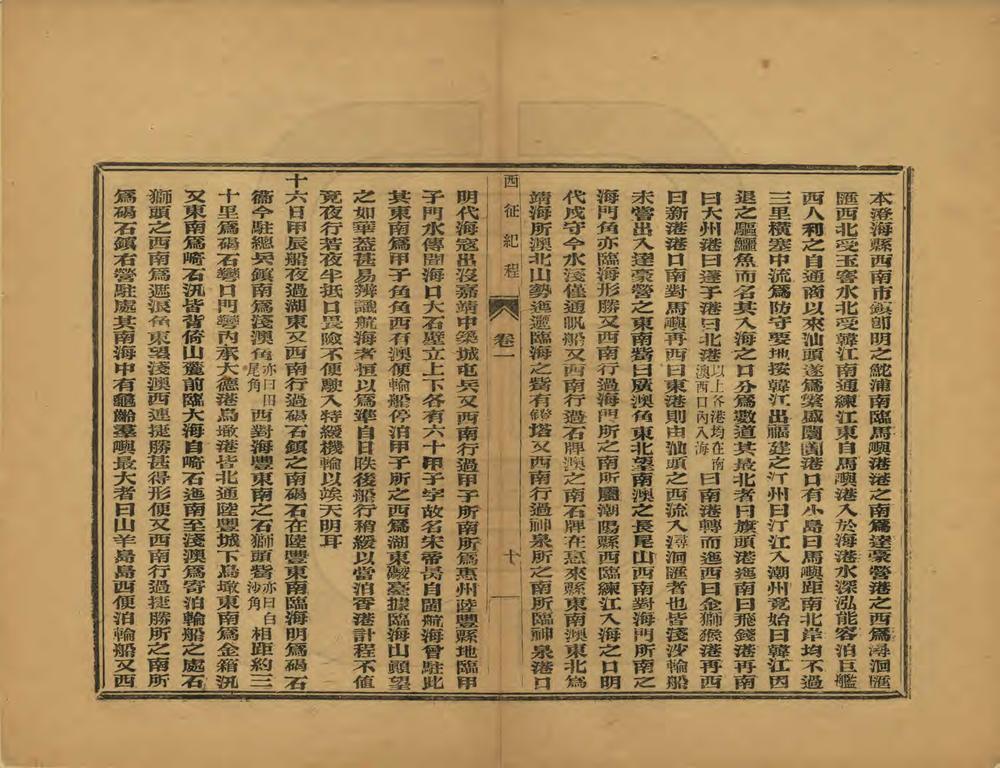 本澄海縣西南市鎮卽明之鮀浦南臨馬嶼港港之南爲達豪營港之西爲潯洄匯
匯西北受玉窖水北受韓江南通練江東自馬嶼港入於海港水深泓能容泊巨艦
西人利之自通商以來汕頭遂爲繁盛闤闠港口有小島曰馬嶼距南北岸均不過
三里橫塞中流爲防守要地按韓江出福建之汀州曰汀江入潮州竟始曰韓江因
退之驅鱷魚而名其入海之口分爲數道其最北者曰旗頭港迤南曰飛錢港再南
曰大州港曰蓬子港曰北港以上各港均在南澳西口內入海曰南港轉而迤西曰金獅猴港再西
曰新港港口南對馬嶼再西曰東港則由汕頭之西流入潯洄匯者也皆淺沙輪船
未嘗出入達豪營之東南觜曰廣澳角東北望南澳之長尾山西南對海門所南之
海門角亦臨海形勝又西南行過海門所之南所屬潮陽縣西臨練江入海之口明
代戍守今水淺僅通帆船又西南行過石牌澳之南石牌在惠來縣東南澳東北爲
靖海所澳北山勢迤邐臨海之觜有 塔又西南行過神泉所之南所臨神泉港口
西征紀程
卷一
十
明代海寇出沒嘉靖中築城屯兵又西南行過甲子所南所爲惠州陸豐縣地臨甲
子門水傳聞海口大石壁立上下各有六十甲子字故名宋帝昺自閩航海曾駐此
其東南爲甲子角角西有澳便輪船停泊甲子所之西爲湖東礮臺據臨海山顚望
之如華蓋甚易辨識航海者恒以爲準自日昳後船行稍緩以當泊香港計程不値
竟夜行若夜半抵口畏險不便駛入特緩機輪以竢天明耳
十六日甲辰船夜過湖東又西南行過碣石鎮之南碣石在陸豐東南臨海明爲碣石
衞今駐總兵鎮南爲淺澳角亦曰田尾角西對海豐東南之石獅頭觜亦曰白沙角相距約三
十里爲碣石灣口門灣內承大德港烏墩港皆北通陸豐城下烏墩東南爲金箱汛
又東南爲崎石汛皆背倚山麓前臨大海自崎石迤南至淺澳爲寄泊輪船之處石
獅頭之西南爲遮浪角東望淺澳西連捷勝甚得形便又西南行過捷勝所之南所
爲碣石鎮右營駐處其南海中有龜齡羣嶼最大者曰山羊島島西便泊輪船又西